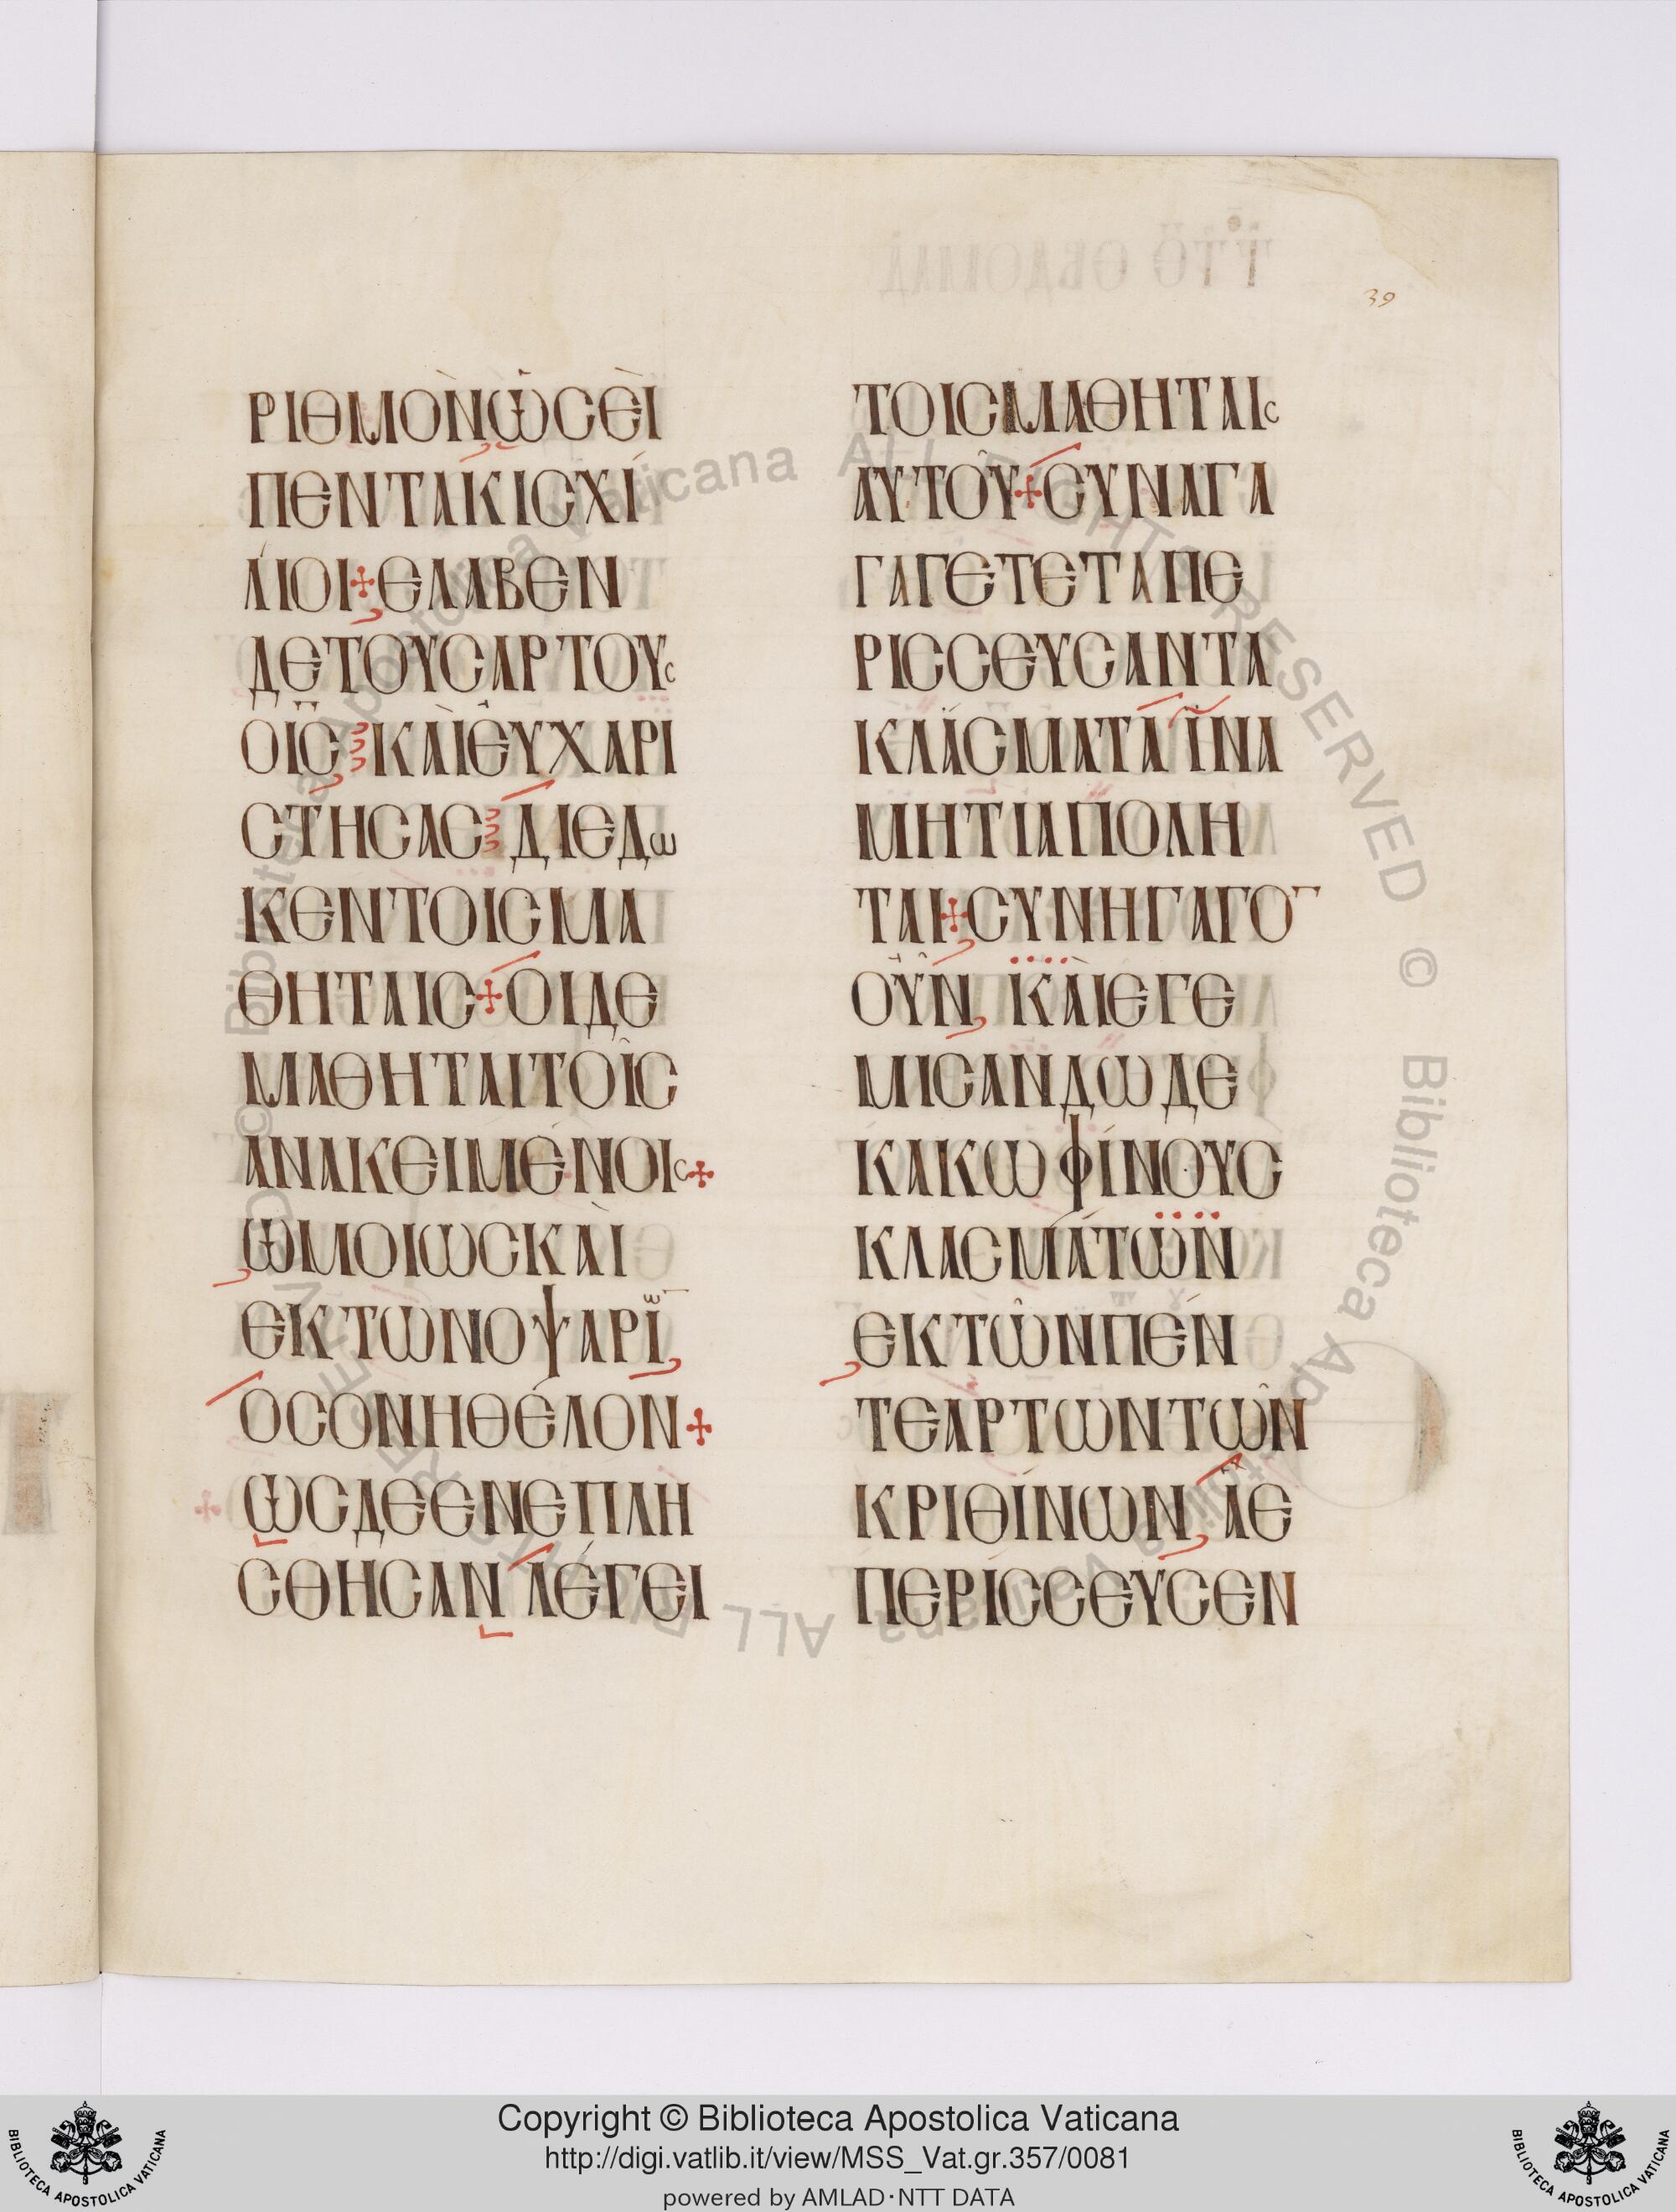 39
ΡΙΘΜῸΝὨCΕῚ
ΠΕΝΤΆΚΙCΧΊ
ΛΙΟΙ+ΕΛΑΒΕΝ
ΔΕΤΟΥCΑΡΤΟΥC
ΟΙ̅C̅ ΚΑῚΕΥ̓ΧΑΡΙ
CΤΗCΑC ΔΙΕΔΩ
ΚΕΝΤΟΙCΜΑ
ΘΗΤΑΙC+ΟΙΔΕ
ΜΑΘΗΤΑΙΤΟΙ͂C
ΑΝΑΚΕΙΜΈΝΟΙC+
ΩΜΟΙΩCΚΑῚ
ΕΚΤΩΝΟΨΑΡΪΩ̅
ΟCΟΝΗΘΈΛΟΝ+
ΩCΔΕΕΝΕΠΛΗ
CΘΗCΑΝ ΛΈΓΕΙ
ΤΟΙCΜΑΘΗΤΑΙC
ΑΥΤΟΥ͂+CΥΝΑΓΑ
ΓΑΓΕΤΕΤΑΠΕ
ΡΙCCΕΥCΑΝΤΑ
ΚΛΆCΜΑΤΑ ΙΝΑ
ΜΗΤΙΑΠΟΛΗ
ΤΑΙ+CΥΝΗΓΑΓΟ̅
ΟΥ̓͂Ν ΚΑῚΕΓΕ
ΜΙCΑΝΔΩΔΕ
ΚΑΚΩΦΊΝΟΥC
ΚΛΑCΜΆΤΩΝ
ΕΚΤΩ͂ΝΠΈΝ
ΤΕΑΡΤΩΝΤΩ͂Ν
ΚΡΙΘΊΝΩΝ ᾺΕ
ΠΕΡΊCCΕΥCΕΝ
Copyright © Biblioteca Apostolica Vaticana
http://digi.vatlib.it/view/MSS_Vat.gr.357/0081
powered by AMLAD·NTT DATA
BIBLIOTECA APOSTOLICA VATICANA
BIBLIOTECA APOSTOLICA VATICANA